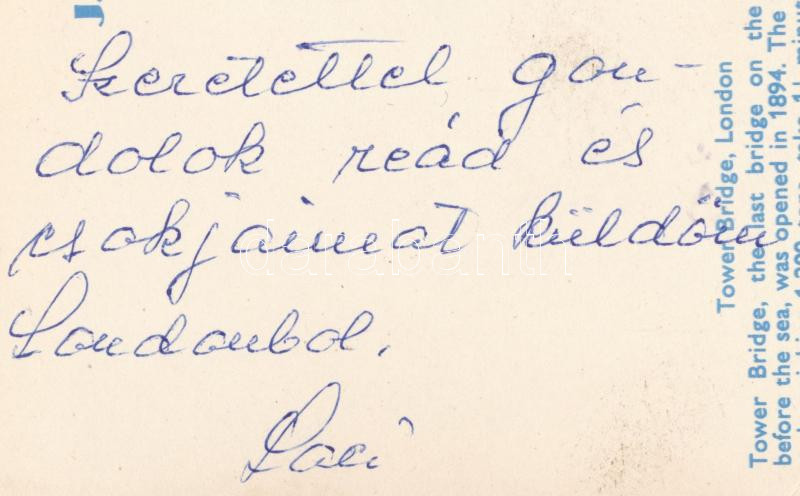 Szeretettel gon-
dolok reád és
csokjaimat küldöm
Londonbol.
Laci
Tower Bridge, London
Tower Bridge, the last bridge on the
before the sea, was opened in 1894. The
darabanth